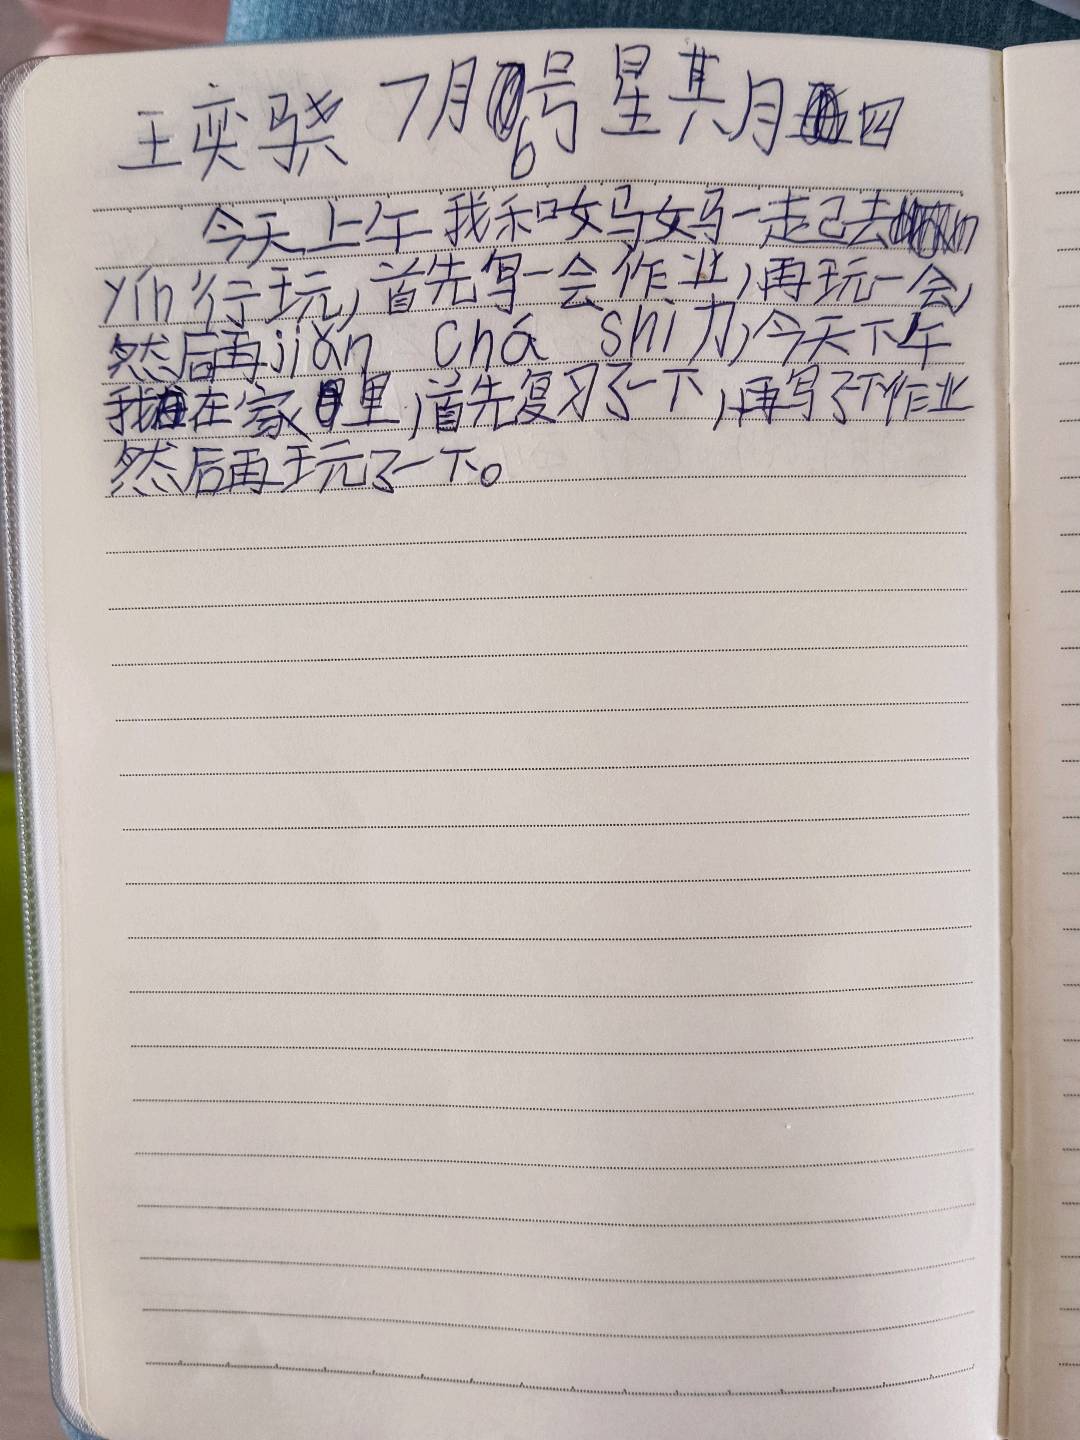 王奕骁 7月6号星期四
今天上午我和妈妈一起去
yín行玩,首先写一会作业,再玩一会,
然后再jiǎn chá shì力,今天下午
我在家里,首先复习了一下,再写了下作业
然后再玩了一下。